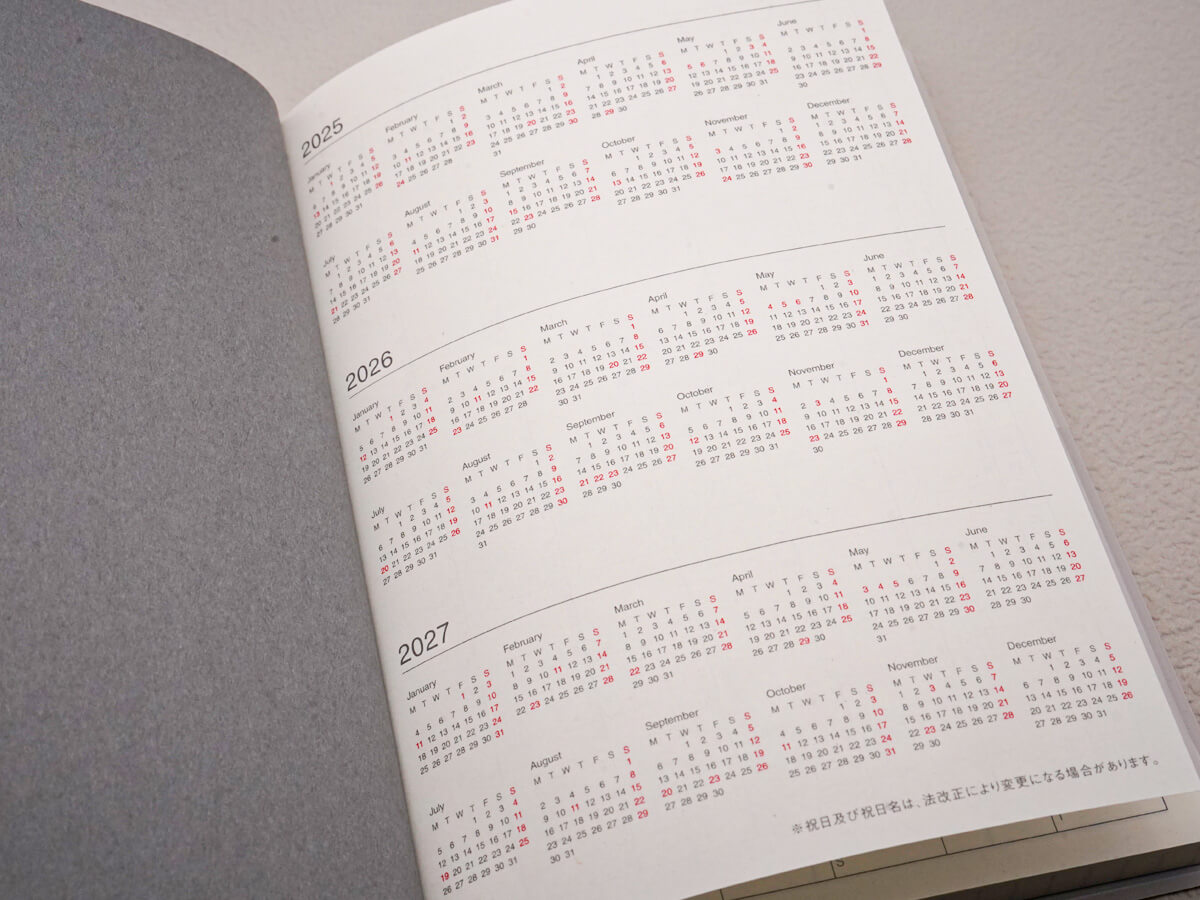 2025
January
M T W T F S S
1 2 3 4 5
6 7 8 9 10 11 12
13 14 15 16 17 18 19
20 21 22 23 24 25 26
27 28 29 30 31
February
M T W T F S S
1 2
3 4 5 6 7 8 9
10 11 12 13 14 15 16
17 18 19 20 21 22 23
24 25 26 27 28
March
M T W T F S S
1 2
3 4 5 6 7 8 9
10 11 12 13 14 15 16
17 18 19 20 21 22 23
24 25 26 27 28 29 30
31
April
M T W T F S S
1 2 3 4 5 6
7 8 9 10 11 12 13
14 15 16 17 18 19 20
21 22 23 24 25 26 27
28 29 30
May
M T W T F S S
1 2 3 4
5 6 7 8 9 10 11
12 13 14 15 16 17 18
19 20 21 22 23 24 25
26 27 28 29 30 31
June
M T W T F S S
1
2 3 4 5 6 7 8
9 10 11 12 13 14 15
16 17 18 19 20 21 22
23 24 25 26 27 28 29
30
July
M T W T F S S
1 2 3 4 5 6
7 8 9 10 11 12 13
14 15 16 17 18 19 20
21 22 23 24 25 26 27
28 29 30 31
August
M T W T F S S
1 2 3
4 5 6 7 8 9 10
11 12 13 14 15 16 17
18 19 20 21 22 23 24
25 26 27 28 29 30 31
September
M T W T F S S
1 2 3 4 5 6 7
8 9 10 11 12 13 14
15 16 17 18 19 20 21
22 23 24 25 26 27 28
29 30
October
M T W T F S S
1 2 3 4 5
6 7 8 9 10 11 12
13 14 15 16 17 18 19
20 21 22 23 24 25 26
27 28 29 30 31
November
M T W T F S S
1 2
3 4 5 6 7 8 9
10 11 12 13 14 15 16
17 18 19 20 21 22 23
24 25 26 27 28 29 30
December
M T W T F S S
1 2 3 4 5 6 7
8 9 10 11 12 13 14
15 16 17 18 19 20 21
22 23 24 25 26 27 28
29 30 31
2026
January
M T W T F S S
1 2 3 4
5 6 7 8 9 10 11
12 13 14 15 16 17 18
19 20 21 22 23 24 25
26 27 28 29 30 31
February
M T W T F S S
1
2 3 4 5 6 7 8
9 10 11 12 13 14 15
16 17 18 19 20 21 22
23 24 25 26 27 28
March
M T W T F S S
1
2 3 4 5 6 7 8
9 10 11 12 13 14 15
16 17 18 19 20 21 22
23 24 25 26 27 28 29
30 31
April
M T W T F S S
1 2 3 4 5
6 7 8 9 10 11 12
13 14 15 16 17 18 19
20 21 22 23 24 25 26
27 28 29 30
May
M T W T F S S
1 2 3
4 5 6 7 8 9 10
11 12 13 14 15 16 17
18 19 20 21 22 23 24
25 26 27 28 29 30 31
June
M T W T F S S
1 2 3 4 5 6 7
8 9 10 11 12 13 14
15 16 17 18 19 20 21
22 23 24 25 26 27 28
29 30
July
M T W T F S S
1 2 3 4 5
6 7 8 9 10 11 12
13 14 15 16 17 18 19
20 21 22 23 24 25 26
27 28 29 30 31
August
M T W T F S S
1 2
3 4 5 6 7 8 9
10 11 12 13 14 15 16
17 18 19 20 21 22 23
24 25 26 27 28 29 30
31
September
M T W T F S S
1 2 3 4 5 6
7 8 9 10 11 12 13
14 15 16 17 18 19 20
21 22 23 24 25 26 27
28 29 30
October
M T W T F S S
1 2 3 4
5 6 7 8 9 10 11
12 13 14 15 16 17 18
19 20 21 22 23 24 25
26 27 28 29 30 31
November
M T W T F S S
1
2 3 4 5 6 7 8
9 10 11 12 13 14 15
16 17 18 19 20 21 22
23 24 25 26 27 28 29
30
December
M T W T F S S
1 2 3 4 5 6
7 8 9 10 11 12 13
14 15 16 17 18 19 20
21 22 23 24 25 26 27
28 29 30 31
2027
January
M T W T F S S
1 2 3
4 5 6 7 8 9 10
11 12 13 14 15 16 17
18 19 20 21 22 23 24
25 26 27 28 29 30 31
February
M T W T F S S
1 2 3 4 5 6 7
8 9 10 11 12 13 14
15 16 17 18 19 20 21
22 23 24 25 26 27 28
March
M T W T F S S
1 2 3 4 5 6 7
8 9 10 11 12 13 14
15 16 17 18 19 20 21
22 23 24 25 26 27 28
29 30 31
April
M T W T F S S
1 2 3 4
5 6 7 8 9 10 11
12 13 14 15 16 17 18
19 20 21 22 23 24 25
26 27 28 29 30
May
M T W T F S S
1 2
3 4 5 6 7 8 9
10 11 12 13 14 15 16
17 18 19 20 21 22 23
24 25 26 27 28 29 30
31
June
M T W T F S S
1 2 3 4 5 6
7 8 9 10 11 12 13
14 15 16 17 18 19 20
21 22 23 24 25 26 27
28 29 30
July
M T W T F S S
1 2 3 4
5 6 7 8 9 10 11
12 13 14 15 16 17 18
19 20 21 22 23 24 25
26 27 28 29 30 31
August
M T W T F S S
1
2 3 4 5 6 7 8
9 10 11 12 13 14 15
16 17 18 19 20 21 22
23 24 25 26 27 28 29
30 31
September
M T W T F S S
1 2 3 4 5
6 7 8 9 10 11 12
13 14 15 16 17 18 19
20 21 22 23 24 25 26
27 28 29 30
October
M T W T F S S
1 2 3
4 5 6 7 8 9 10
11 12 13 14 15 16 17
18 19 20 21 22 23 24
25 26 27 28 29 30 31
November
M T W T F S S
1 2 3 4 5 6 7
8 9 10 11 12 13 14
15 16 17 18 19 20 21
22 23 24 25 26 27 28
29 30
December
M T W T F S S
1 2 3 4 5
6 7 8 9 10 11 12
13 14 15 16 17 18 19
20 21 22 23 24 25 26
27 28 29 30 31
※祝日及び祝日名は、法改正により変更になる場合があります。